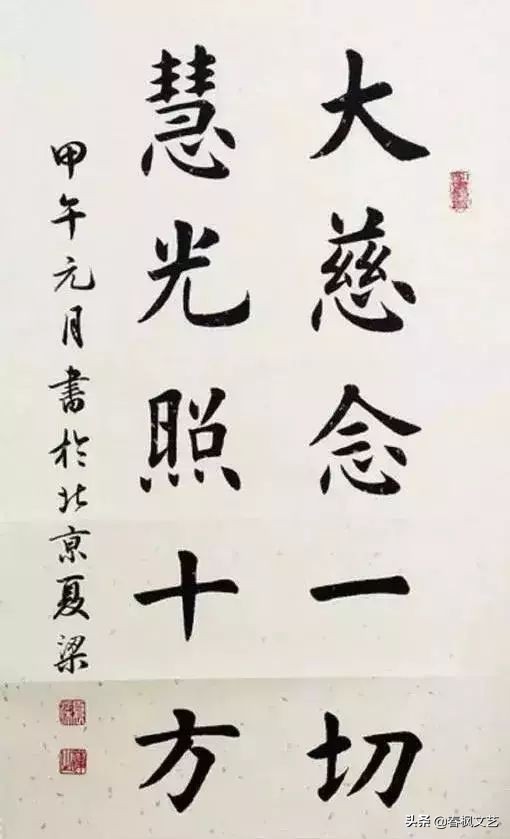 大慈念一切
慧光照十方
甲午元月書於北京夏梁
头条 @春枫文艺